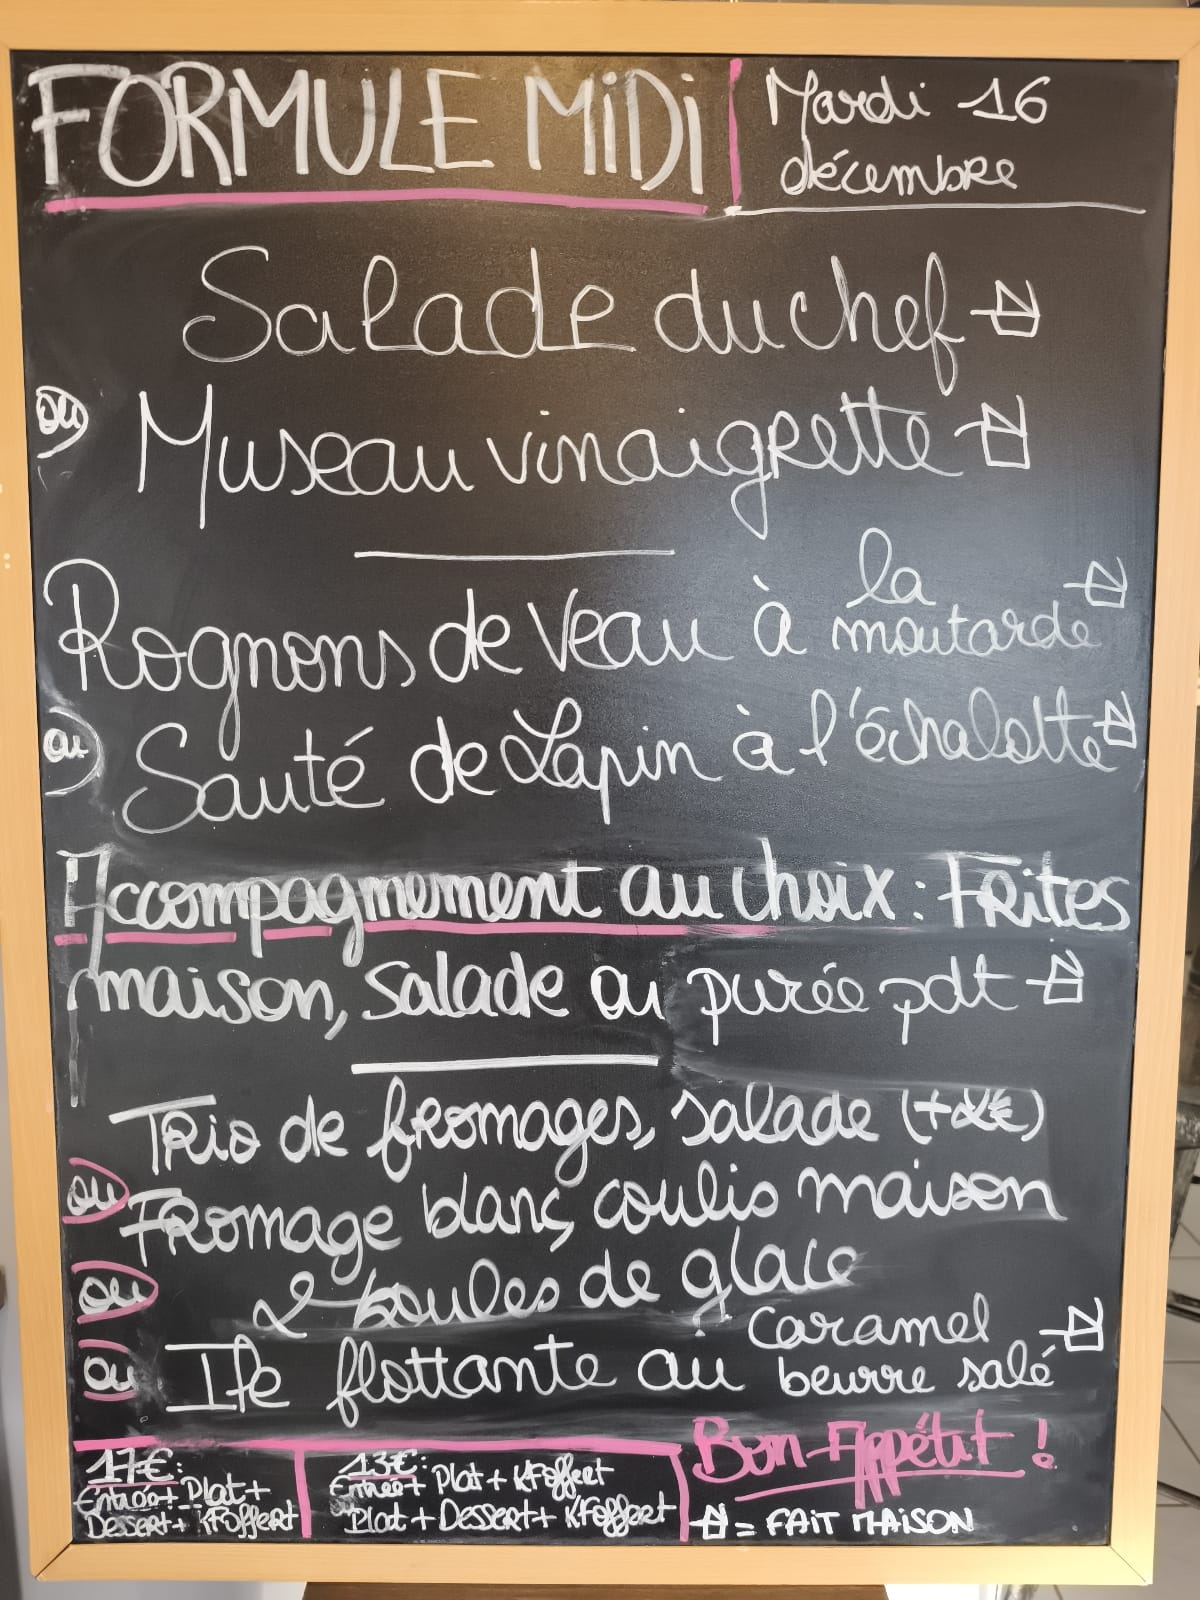 FORMULE MIDI
Mardi 16
décembre
Salade du chef
ou
Museau vinaigrette
Rognons de veau à la
moutarde
ou
Sauté de Lapin à l'échalotte
Accompagnement au choix : Frites
maison, salade ou purée pdt
Trio de fromages, salade (+2€)
ou
Fromage blanc, coulis maison
ou
2 boules de glace
ou
Ile flottante au caramel
beurre salé
17€:
Entrée+Plat+
Dessert+K'Foffert
13€:
Entrée+Plat+K'Foffert
Plat+Dessert+K'Foffert
Bon-Appétit !
= FAIT MAISON